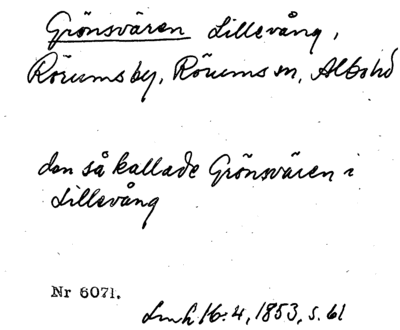 Grönsvären Lillevång,
Rörums by, Rörums sn, Albo hd
den så kallade Grönsvären i
Lillevång
Nr 6071.
Lmh 16:4, 1853, s. 61